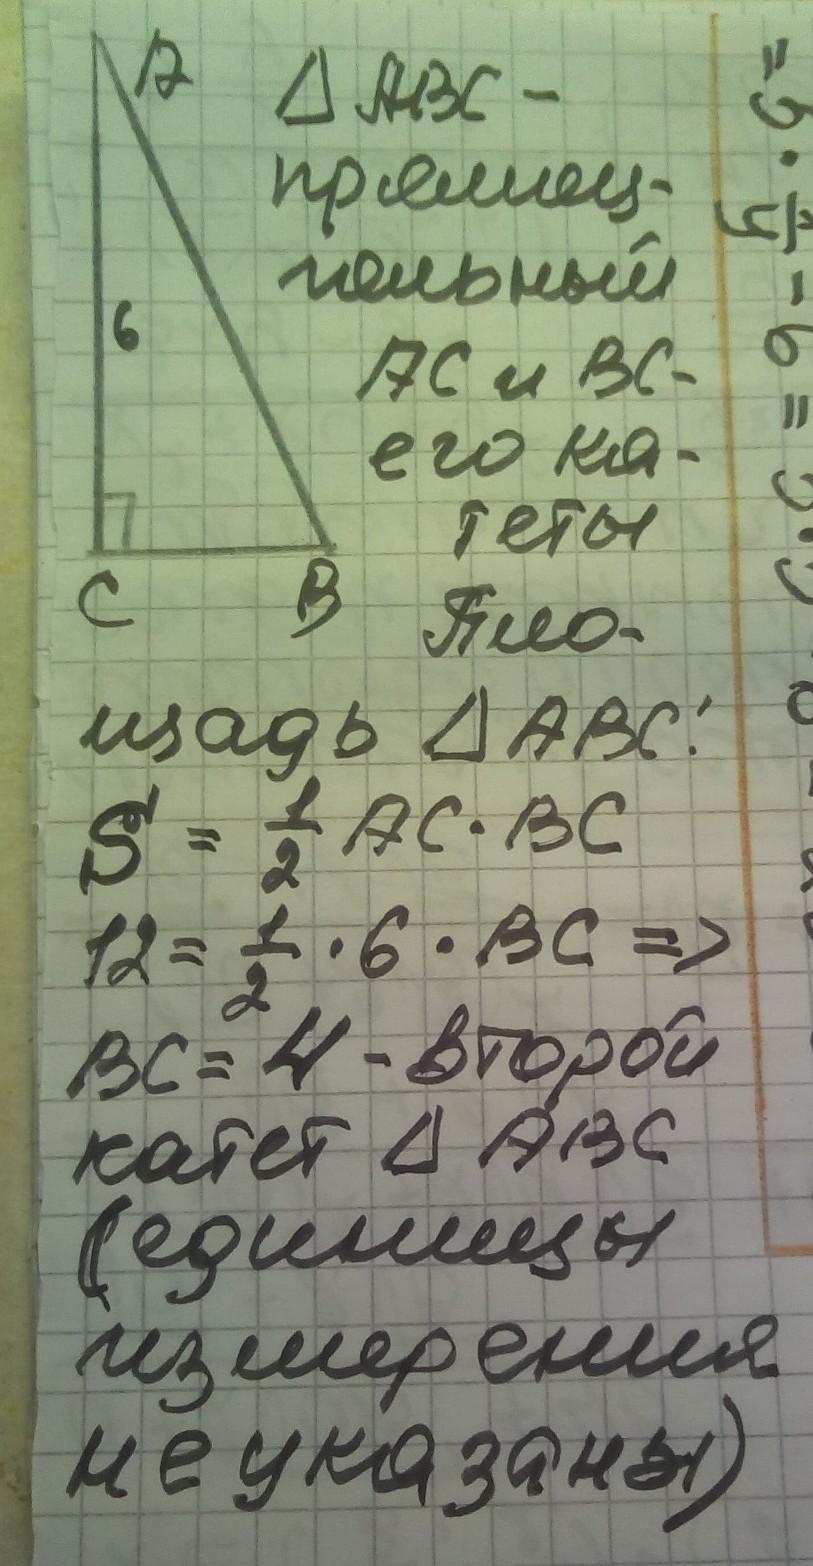 A
△ ABC -
прямоуг-
ольный
6
AC и BC-
его ка-
теты
C B
Пло-
щадь △ ABC:
S = 1/2 AC · BC
12 = 1/2 · 6 · BC =>
BC = 4 - второй
катет △ ABC
(единицы
измерения
не указаны)